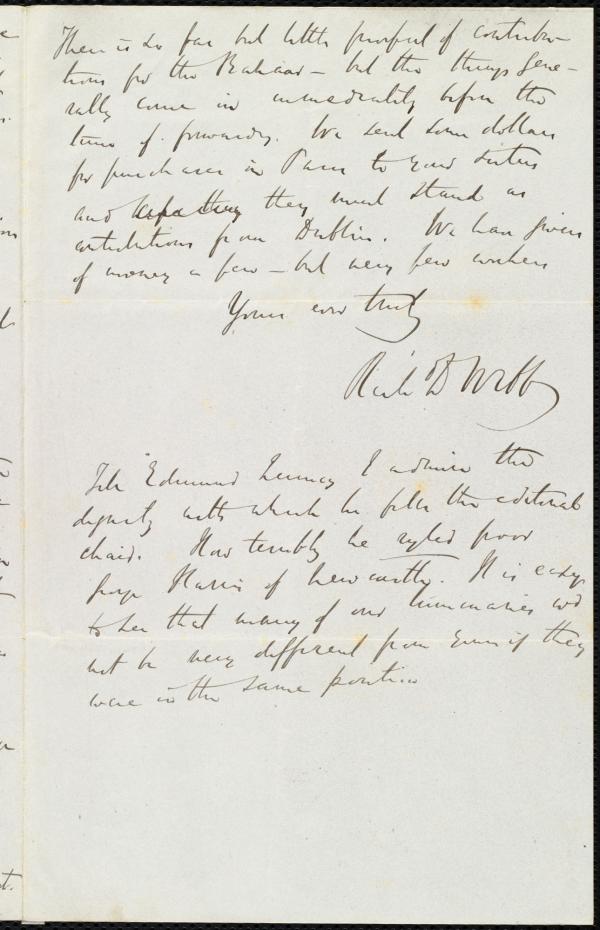 There is so far but little proof of contribu-
tions for the Bazaar – but the things gene-
rally come in immediately before the
time of forwarding. We sent some dollars
for purchases in Paris to your sisters
and they must stand as
contributions from Dublin. We have givers
of money a few – but very few workers
Yours ever truly
Rich D Webb
Tell Edmund Quincy I admire the
dignity with which he fills the editorial
chair. How terribly he poor
George Harris of Newcastle. It is easy
to see that many of our luminaries wd
not be very different from yours if they
were in the same position